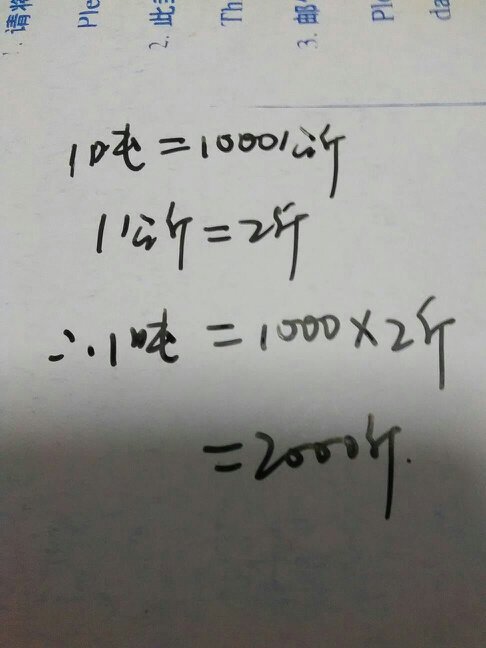 1. 请将
Ple
2. 此
Th
3. 邮
Pl
da
1吨=1000公斤
1公斤=2斤
∴1吨=1000×2斤
=2000斤.